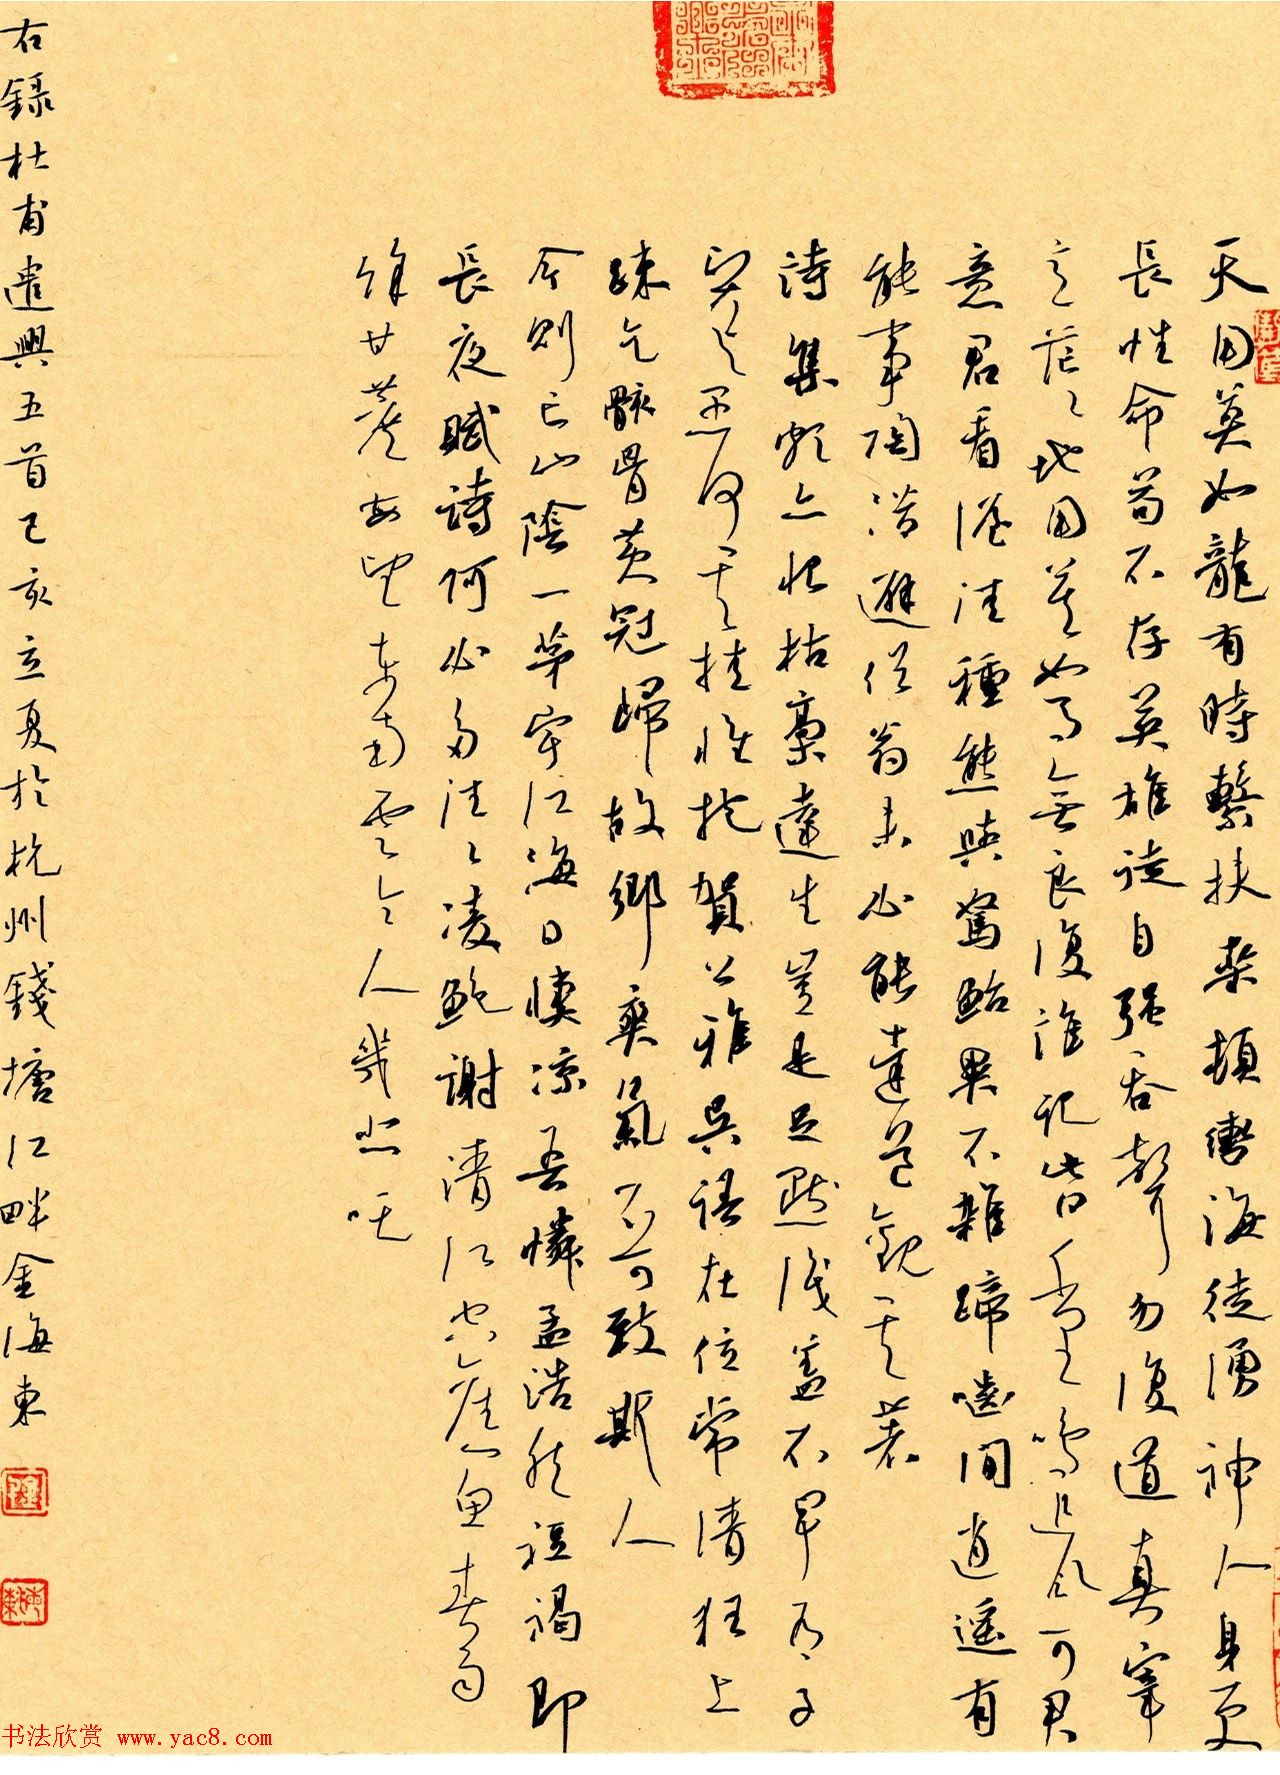 天用莫如龍有時繫扶桑頓轡海徒湧神人身更
長性命苟不存英雄徒自强吞聲勿復道真宰
意茫〻地用莫如馬無良復誰記此日千里鳴追風可君
意君看渥洼種態與駑駘異不雜蹄嚙間逍遥有
能事陶潛避俗翁未必能達道觀其著
詩集頗亦恨枯槁達生豈是足默識蓋不早有子
賢與愚何其挂懷抱賀公雅吳語在位常清狂上
疎乞骸骨黄冠歸故鄉爽氣不可致斯人
今則亡山陰一茅宇江海日悽凉吾憐孟浩然裋褐即
長夜賦詩何必多往〻凌鮑謝清江空舊魚春雨
餘甘蔗每望東南雲令人幾悲吒
右錄杜甫遣興五首己亥立夏於杭州錢塘江畔金海東
书法欣赏 www.yac8.com